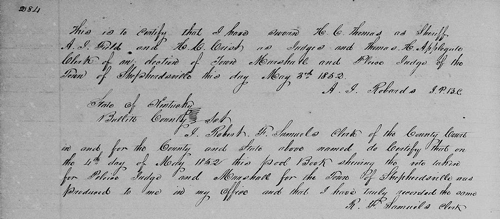 284
This is to certify that I have sworn H. C. Thomas as Sheriff
A. J. Field and H. G. Crist as Judges and Thomas H. Applegate
Clerk of an election of Town Marshall and Police Judge of the
Town of Shepherdsville this day May 3rd 1852
A. J. Robards J.P.B.C.
State of Kentucky
Bullitt County Sct
I, Robert F. Samuels Clerk of the County Court
in and for the County and State above named, do Certify that on
the 4th day of May 1852 this poll Book shewing the vote taken
for Police Judge and Marshall for the Town of Shepherdsville was
produced to me in my office and that I have truly recorded the same
R. F. Samuels Clerk